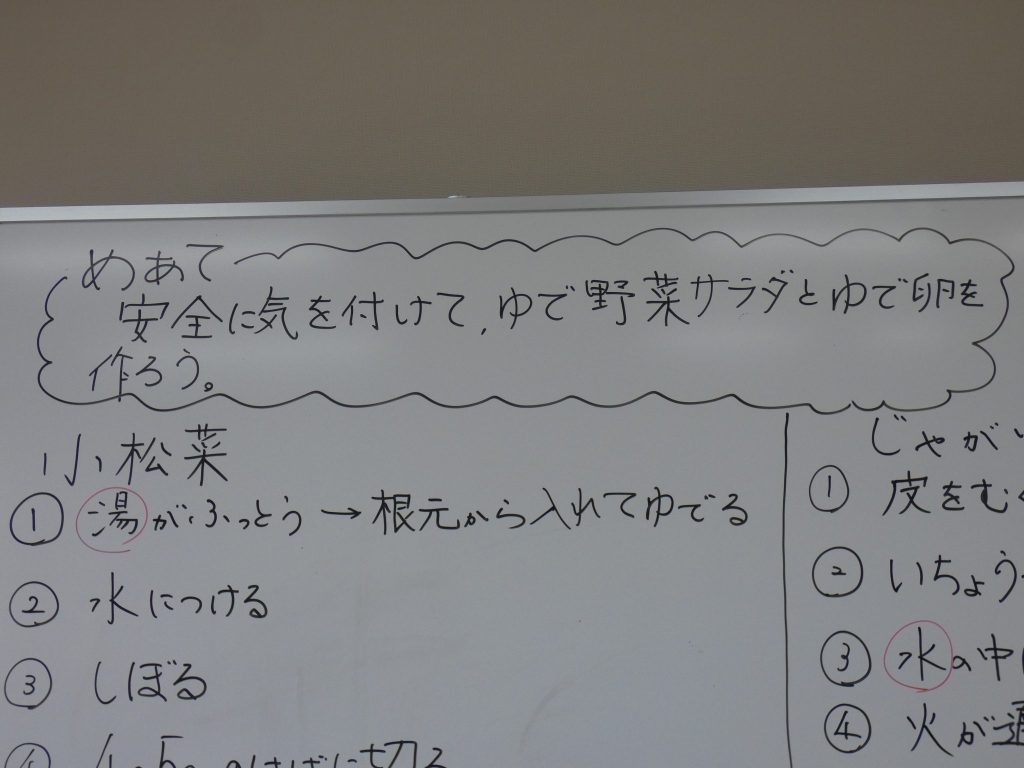 めあて
安全に気を付けて,ゆで野菜サラダとゆで卵を
作ろう。
小松菜
① 湯がふっとう → 根元から入れてゆでる
② 水につける
③ しぼる
④ に切る
じゃが
① 皮をむ
② いちょう
③ 水の中
④ 火が通